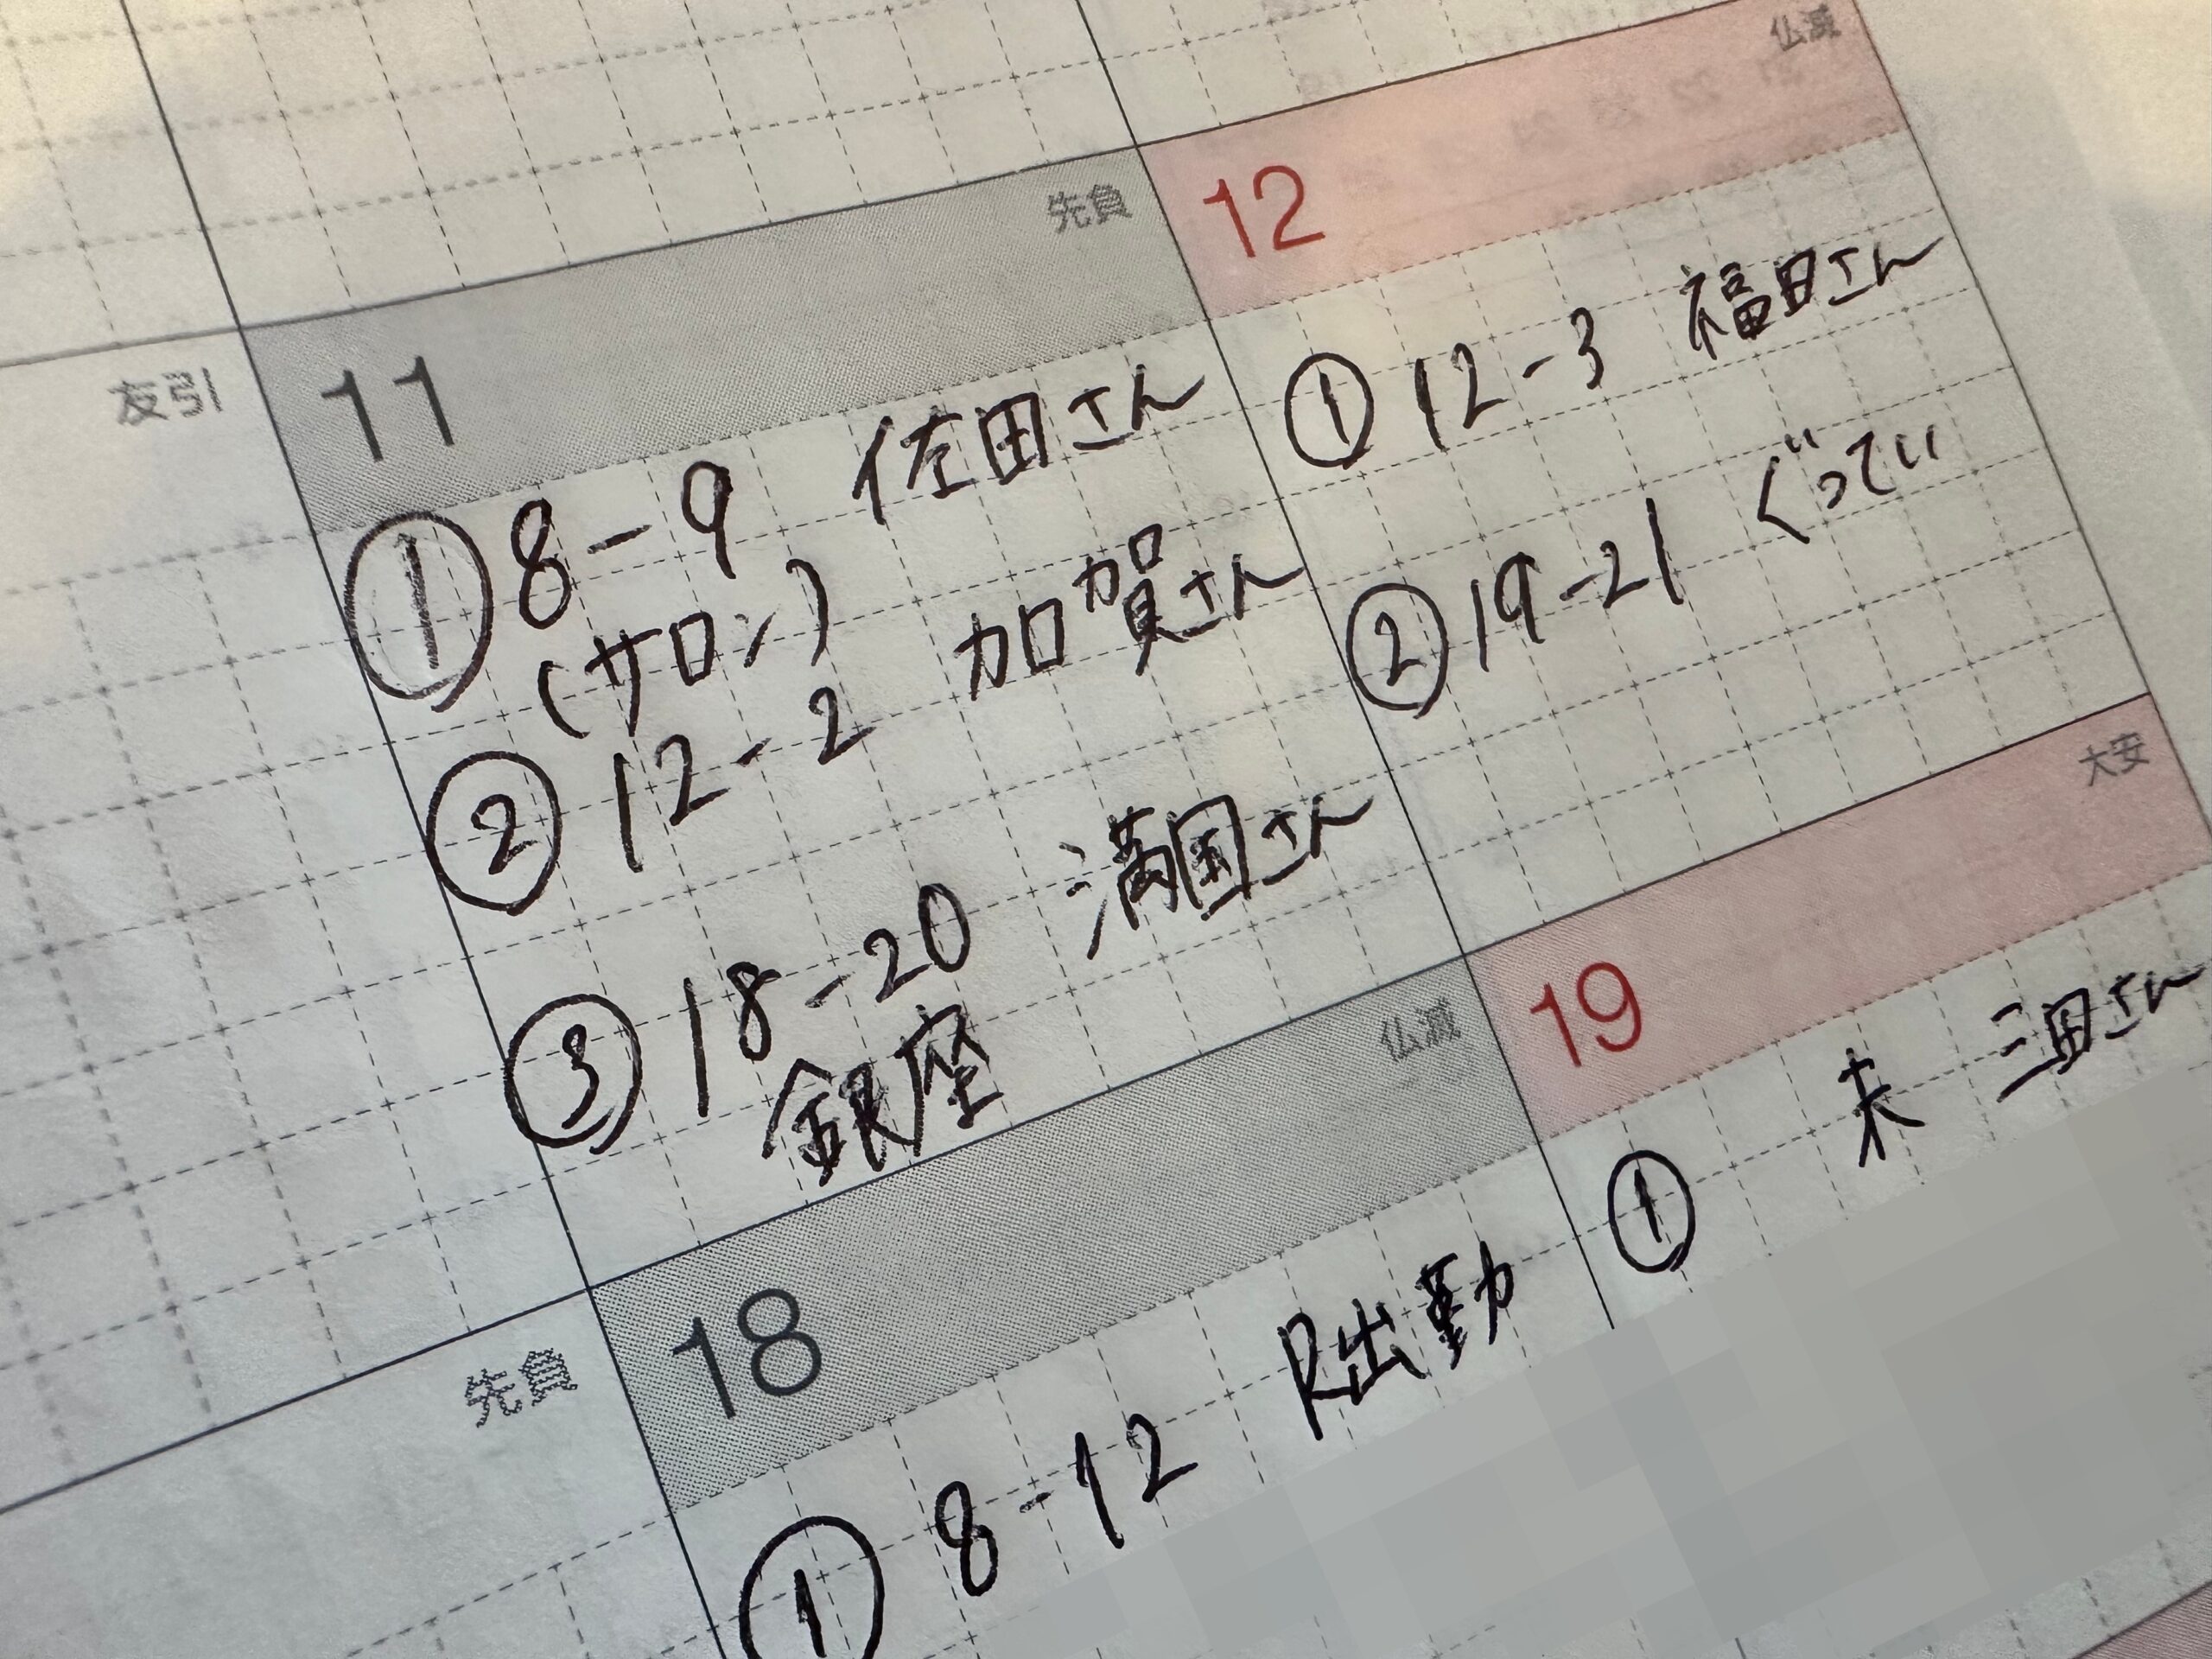 仏滅
友引
11 先負
① 8-9 佐田さん
(サロン)
② 12-2 加賀さん
③ 18-20 満国さん
銀座
12
① 12-3 福田さん
② 19-21 ぐってぃ
先負
18 仏滅
① 8-12 R出勤
19 大安
① 未 三田さん